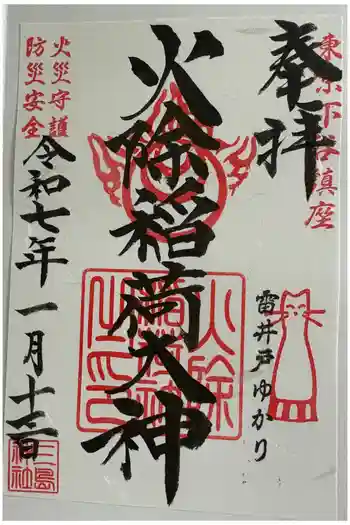 東京下谷鎮座
奉拝
雷井戸ゆかり
火除稲荷大神
火除稲荷大神之印
火災守護
防災安全
令和七年一月十三日
三島神社